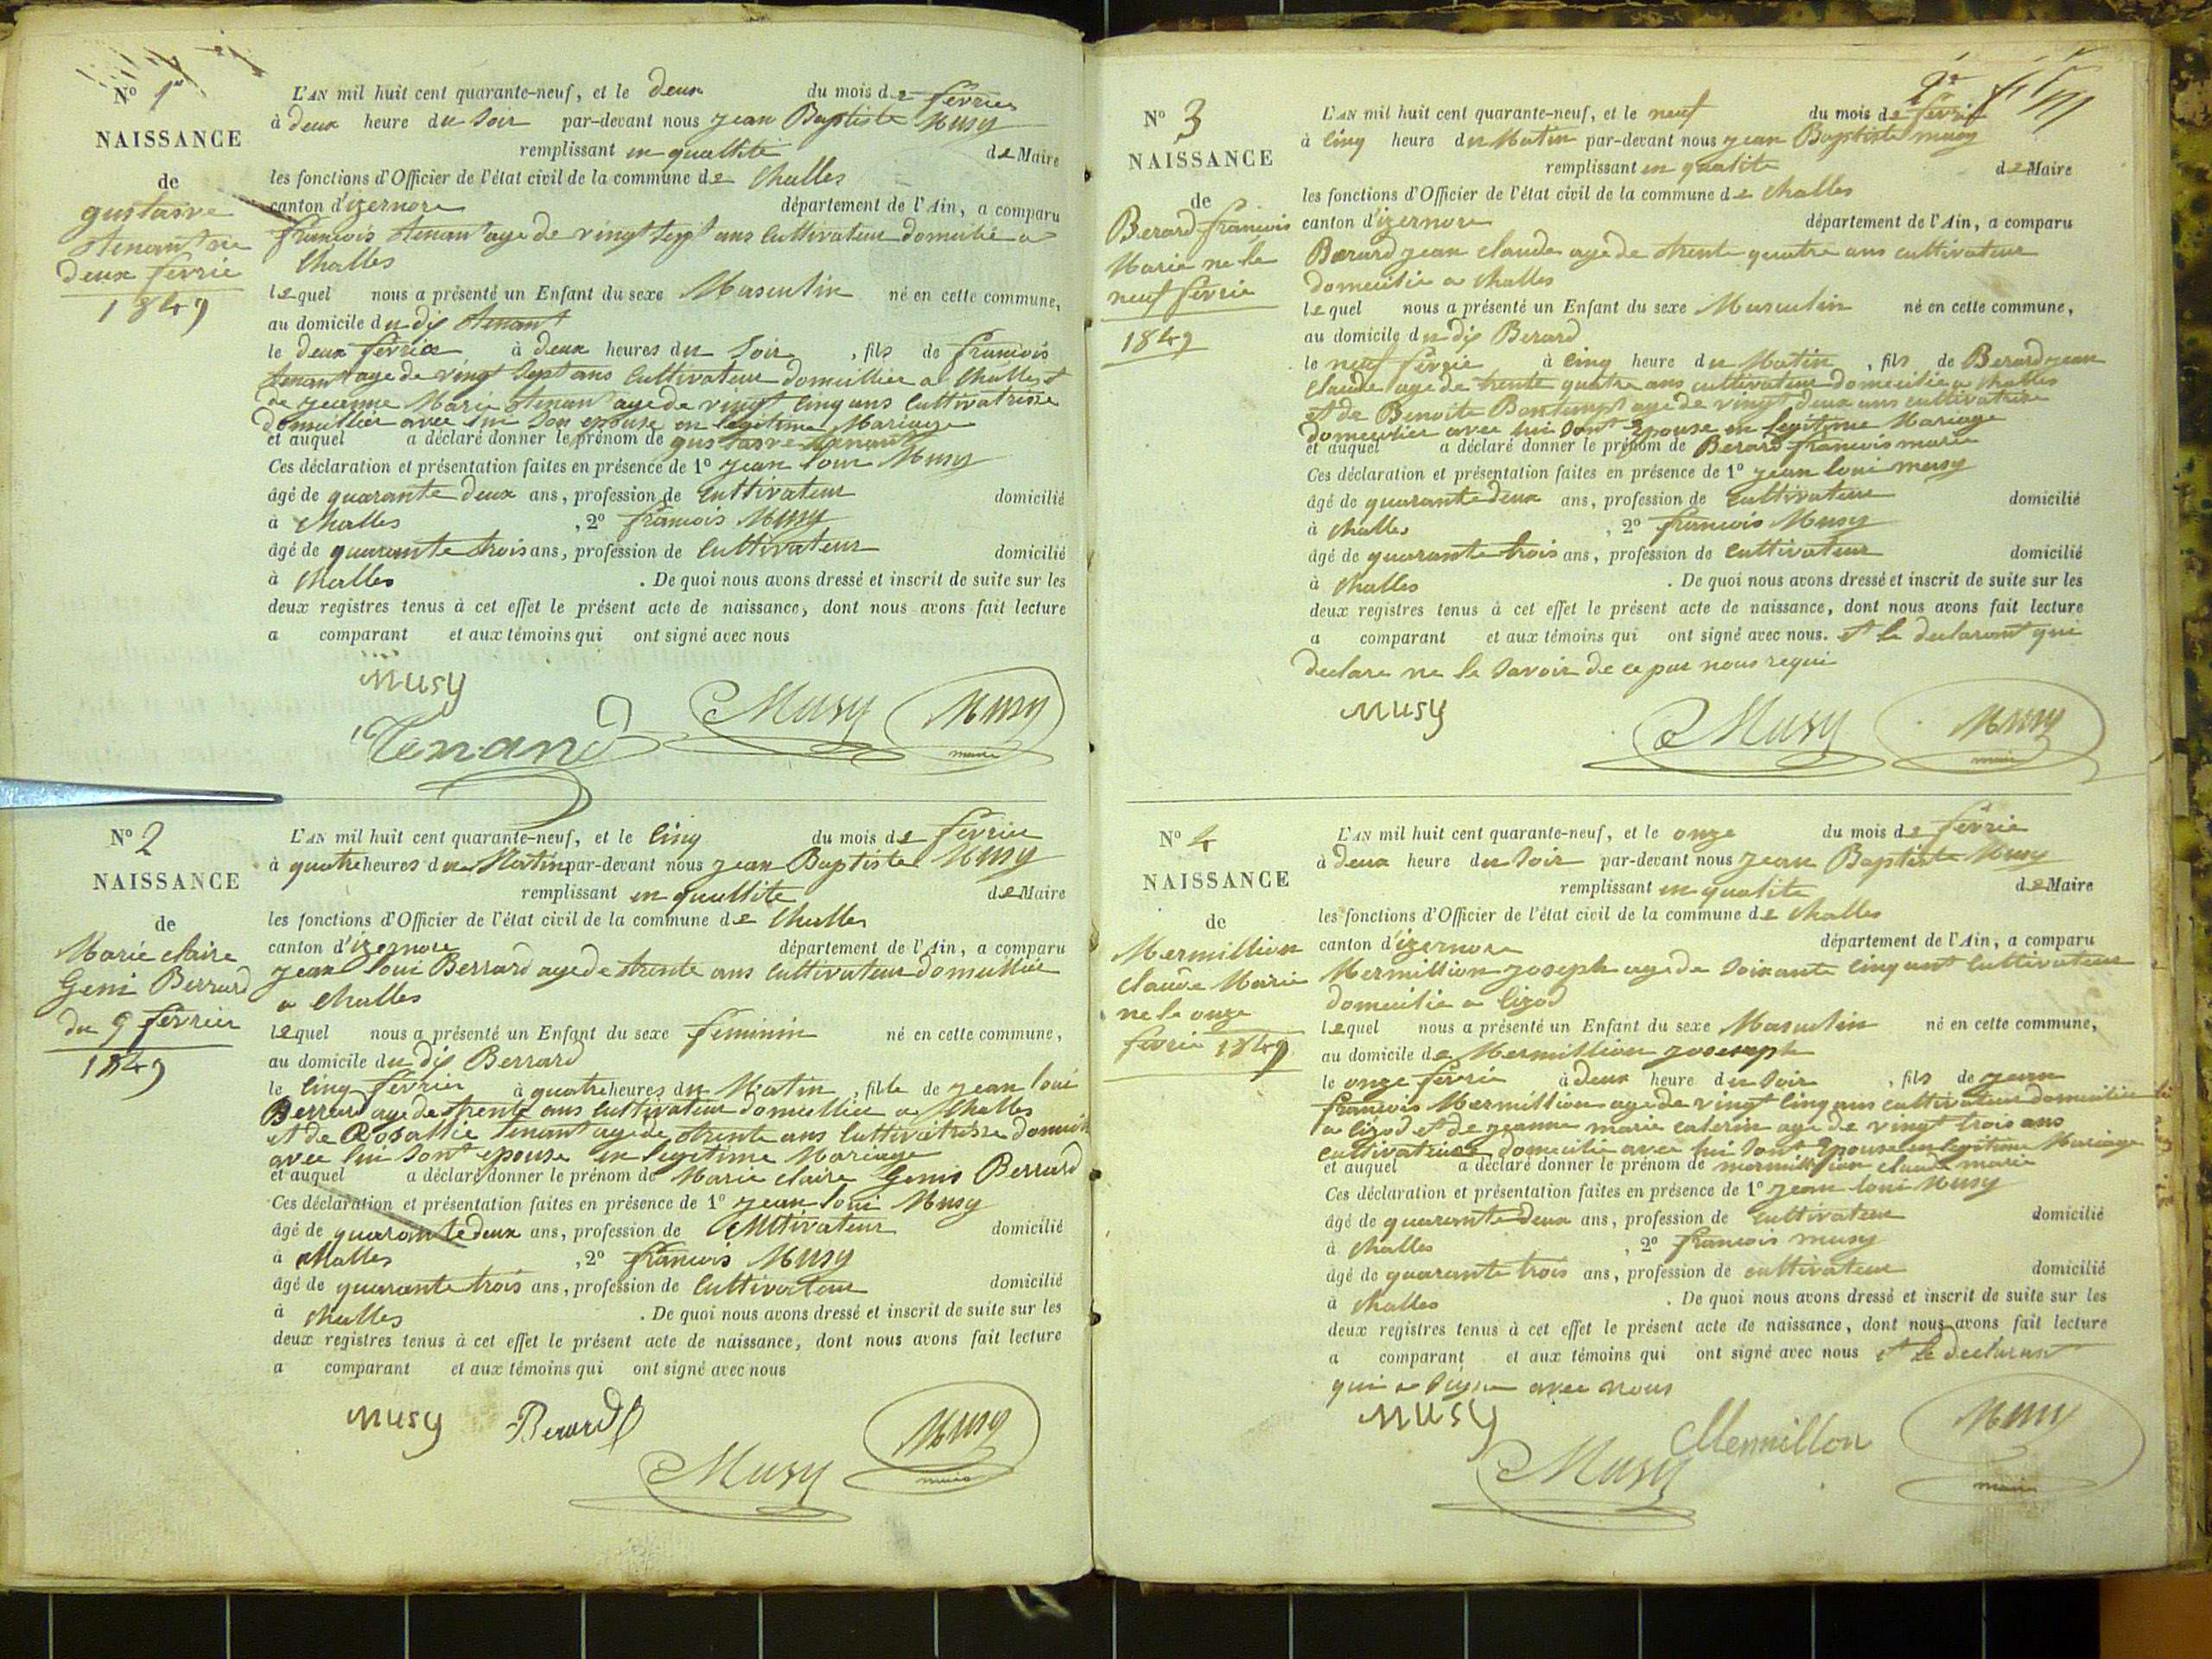 N° 1er
NAISSANCE
de
gustasve
tenant né
deux fevrié
1849
L'AN mil huit cent quarante-neuf, et le deux du mois de fevrier
à deux heure du soir par-devant nous jean Baptiste Musy
remplissant en quallité de Maire
les fonctions d'Officier de l'état civil de la commune de Challes
canton d'izernore département de l'Ain, a comparu
francois tenant age de vingt sept ans Cultivateur domicilié a
Challes
lequel nous a présenté un Enfant du sexe Masculin né en cette commune,
au domicile du dis tenant
le deux fevrier à deux heures du soir, fils de francois
tenant age de vingt sept ans Cultivateur domicillier a Challes et
de jeanne Marie tenant age de vingt cinq ans Cultivatrisse
domicillier avec lui son epouse en legitime Mariage
et auquel a déclaré donner le prénom de gustasve tenant
Ces déclaration et présentation faites en présence de 1° jean loui Musy
âgé de quarante deux ans, profession de Cultivateur domicilié
à Challes, 2° francois Musy
âgé de quarante trois ans, profession de Cultivateur domicilié
à Challes. De quoi nous avons dressé et inscrit de suite sur les
deux registres tenus à cet effet le présent acte de naissance, dont nous avons fait lecture
a comparant et aux témoins qui ont signé avec nous
Musy
Tenand Musy Musy
maire
N° 2
NAISSANCE
de
Marie claire
Geni Berrard
du 5 fevrier
1849
L'AN mil huit cent quarante-neuf, et le Cinq du mois de fevrier
à quatre heures du Matin par-devant nous jean Baptiste Musy
remplissant en quallité de Maire
les fonctions d'Officier de l'état civil de la commune de Challes
canton d'izernore département de l'Ain, a comparu
jean loui Berrard age de trente ans Cultivateur domicillier
a Challes
lequel nous a présenté un Enfant du sexe feminin né en cette commune,
au domicile du dis Berrard
le Cinq fevrier à quatre heures du Matin, fille de jean loui
Berrard age de trente ans Cultivateur domicillier a Challes
et de Rosallie tenant age de trente ans Cultivatrisse
avec lui sont epouse en legitime Mariage
et auquel a déclaré donner le prénom de Marie claire Genis Berrard
Ces déclaration et présentation faites en présence de 1° jean loui Musy
âgé de quarante deux ans, profession de Cultivateur domicilié
à Challes, 2° francois Musy
âgé de quarante trois ans, profession de Cultivateur domicilié
à Challes. De quoi nous avons dressé et inscrit de suite sur les
deux registres tenus à cet effet le présent acte de naissance, dont nous avons fait lecture
a comparant et aux témoins qui ont signé avec nous
Musy Berard Musy
Musy maire
N° 3
NAISSANCE
de
Berard francois
Marie né le
neuf fevrié
1849
L'AN mil huit cent quarante-neuf, et le neuf du mois de fevrié
à cinq heure du Matin par-devant nous jean Baptiste musy
remplissant en qualité de Maire
les fonctions d'Officier de l'état civil de la commune de Challes
canton d'izernore département de l'Ain, a comparu
Berard jean claude age de trente quatre ans cultivateur
domicilié a Challes
lequel nous a présenté un Enfant du sexe Masculin né en cette commune,
au domicile du dis Berard
le neuf fevrie à cinq heure du Matin, fils de Berard jean
Claude age de trente quatre ans cultivateur domicilié a Challes
et de Benoite Bontemps age de vingt deux ans cultivatrise
domicilier avec lui sont Epouse en legitime Mariage
et auquel a déclaré donner le prénom de Berard francois marie
Ces déclaration et présentation faites en présence de 1° jean loui musy
âgé de quarante deux ans, profession de Cultivateur domicilié
à Challes, 2° francois Musy
âgé de quarante trois ans, profession de Cultivateur domicilié
à Challes. De quoi nous avons dressé et inscrit de suite sur les
deux registres tenus à cet effet le présent acte de naissance, dont nous avons fait lecture
a comparant et aux témoins qui ont signé avec nous. et le declarant qui
declare ne le savoir de ce par nous requi
Musy Musy Musy
maire
N° 4
NAISSANCE
de
Mermillion
Claude Marie
ne le onze
fevrie 1849
L'AN mil huit cent quarante-neuf, et le onze du mois de fevrié
à deux heure du soir par-devant nous jean Baptiste Musy
remplissant en qualité de Maire
les fonctions d'Officier de l'état civil de la commune de Challes
canton d'izernore département de l'Ain, a comparu
Mermillion joseph age de soixante cinq ant Cultivateur
domicilié a Cizod
lequel nous a présenté un Enfant du sexe Masculin né en cette commune,
au domicile de Mermillion
le onze fevrie à deux heure du soir, fils de jean
francois Mermillion age de vingt cinq ans cultivateur domicilier
a Cizod et de jeanne marie caterin age de vingt trois ans
cultivatrise domicilié avec lui sont Epouse en legitime Mariage
et auquel a déclaré donner le prénom de mermillion claude marie
Ces déclaration et présentation faites en présence de 1° jean loui Musy
âgé de quarante deux ans, profession de Cultivateur domicilié
à Challes, 2° francois musy
âgé de quarante trois ans, profession de cultivateur domicilié
à Challes. De quoi nous avons dressé et inscrit de suite sur les
deux registres tenus à cet effet le présent acte de naissance, dont nous avons fait lecture
a comparant et aux témoins qui ont signé avec nous et le declarant
qui a signe avec nous
Musy Mermillon Musy
Musy maire